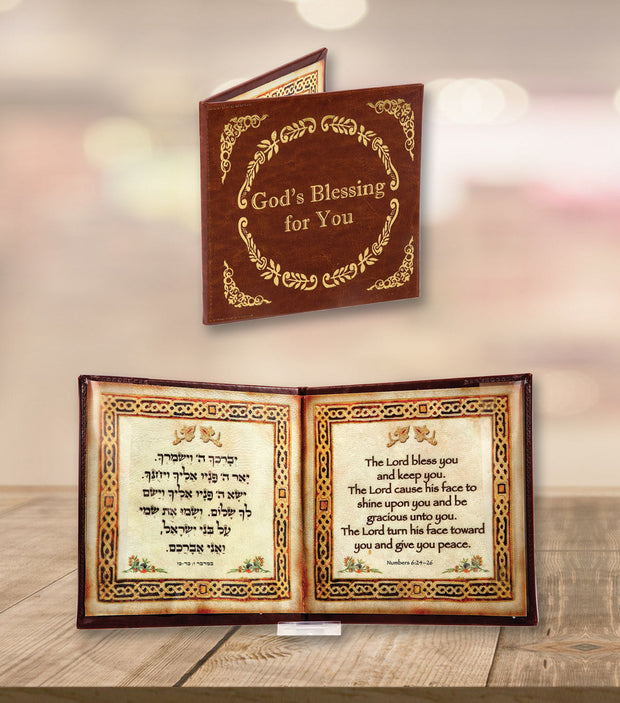 God's Blessing
for You
יְבָרֶכְךָ ה' וְיִשְׁמְרֶךָ.
יָאֵר ה' פָּנָיו אֵלֶיךָ וִיחֻנֶּךָּ.
יִשָּׂא ה' פָּנָיו אֵלֶיךָ וְיָשֵׂם
לְךָ שָׁלוֹם. וְשָׂמוּ אֶת שְׁמִי
עַל בְּנֵי יִשְׂרָאֵל,
וַאֲנִי אֲבָרְכֵם.
במדבר ו,
The Lord bless you
and keep you.
The Lord cause his face to
shine upon you and be
gracious unto you.
The Lord turn his face toward
you and give you peace.
Numbers 6:24–26